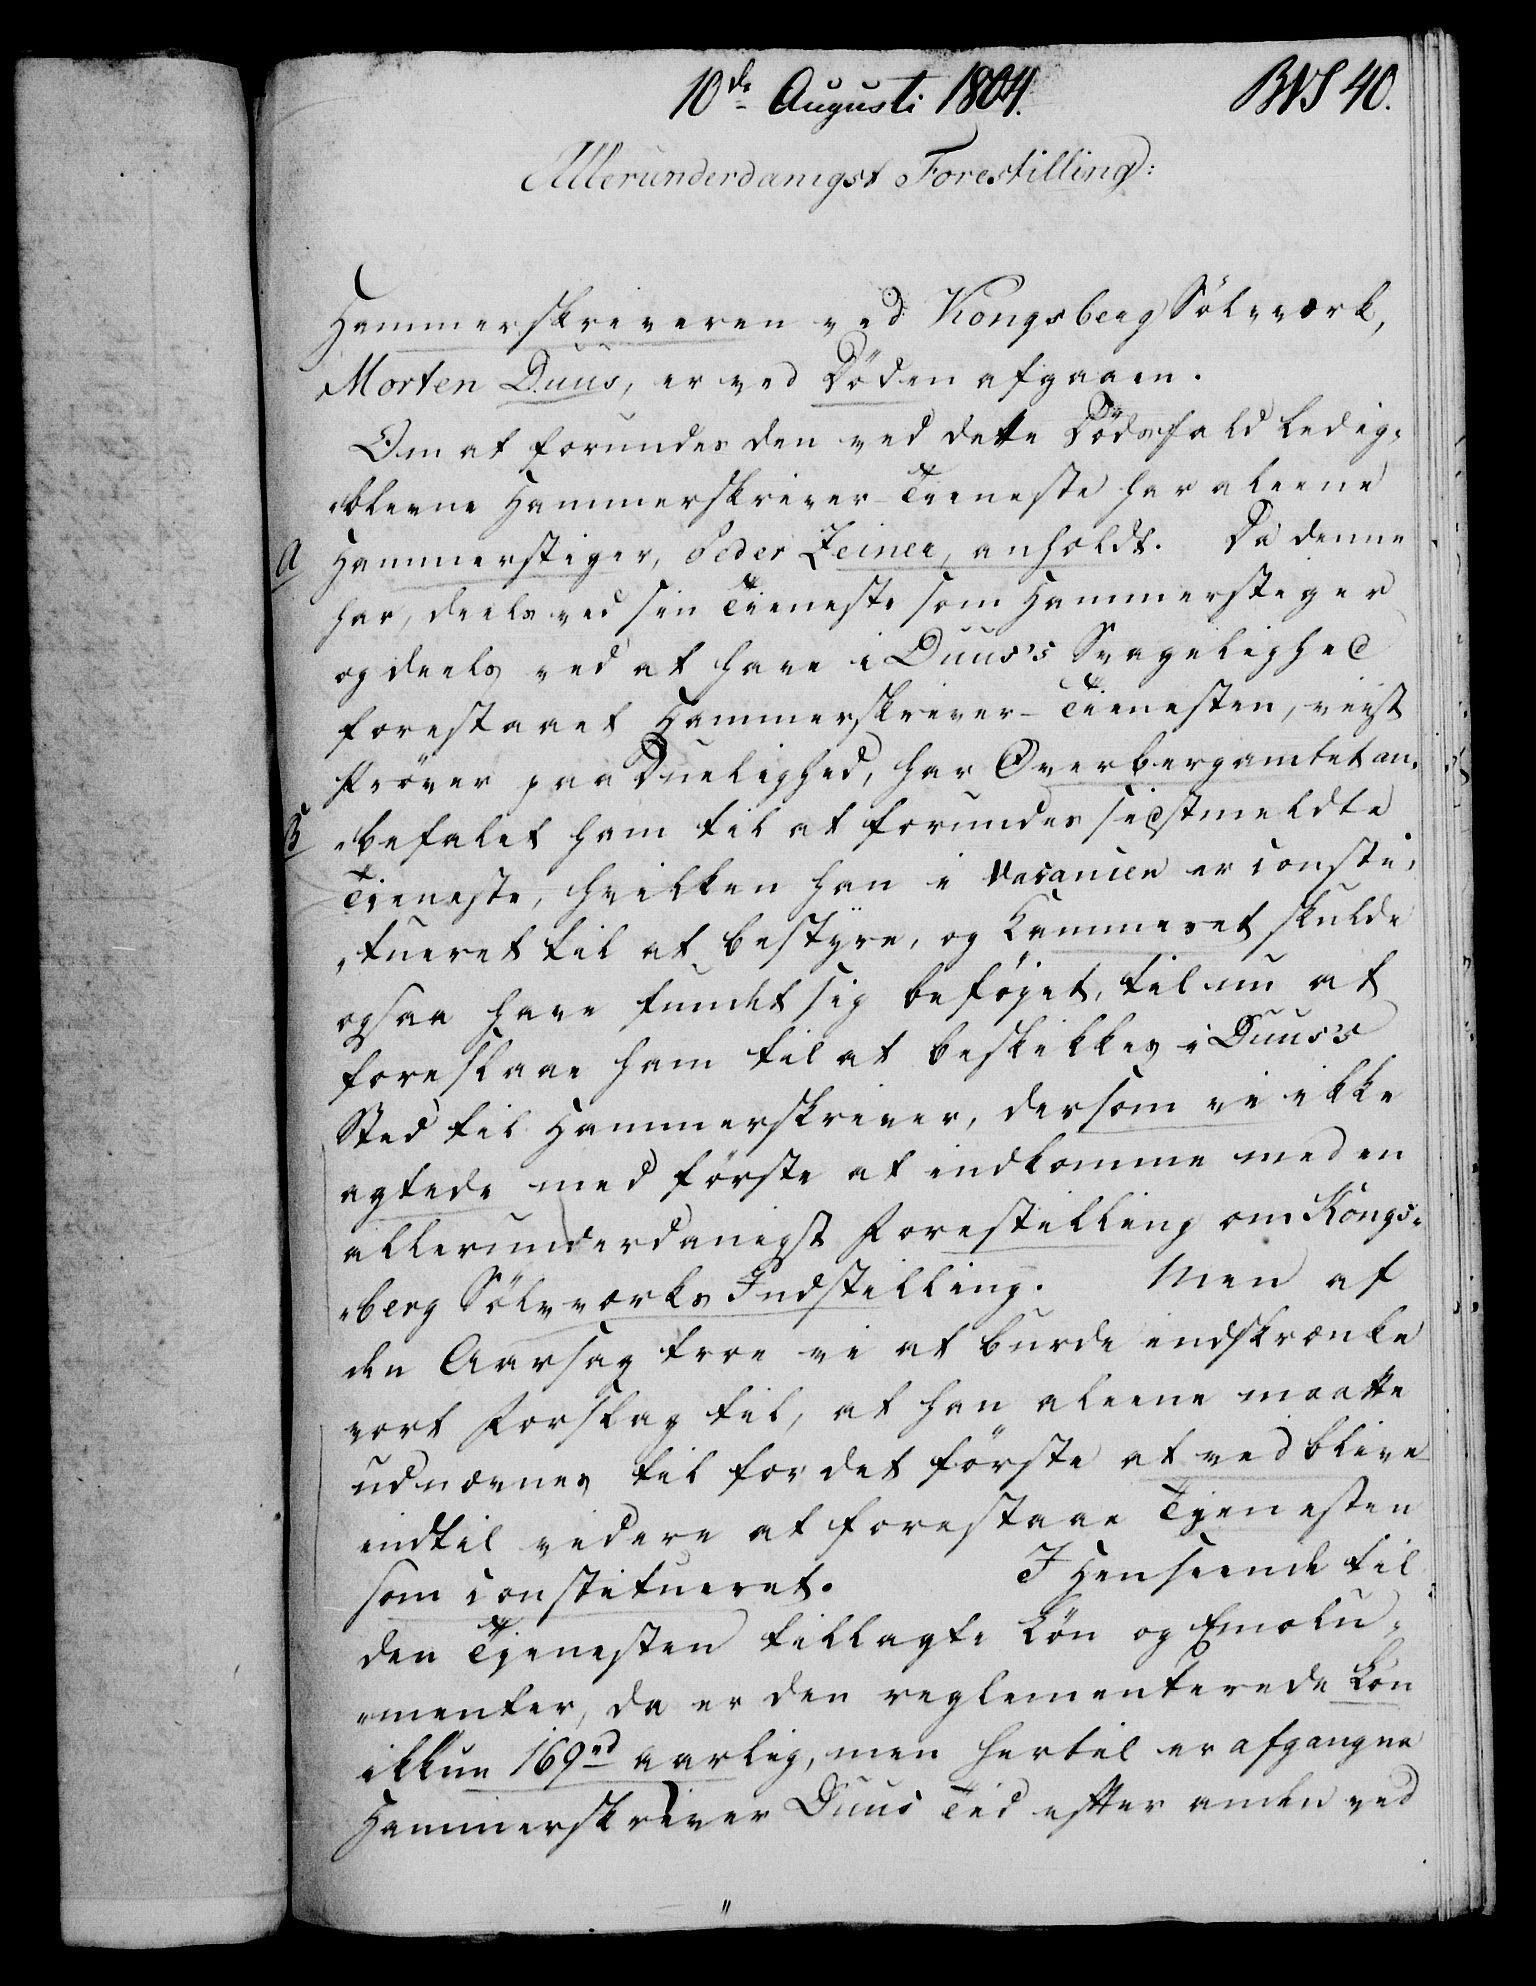 10de Augusti 1804. BVS 40.
Allerunderdanigst Forestilling:
Hammerskriveren ved Kongsberg Sölvværk,
Morten Duus, er ved Döden afgaaen.
Om at forundes den ved dette Dödsfald ledig-
blevne Hammerskriver-Tieneste har aleene
A Hammerstiger, Peder Zeiner, anholdt. Da denne
har, deels ved sin Tieneste som Hammerstiger
og deels ved at have i Duus's Svagelighed
forestaaet Hammerskriver-Tienesten, viist
Pröver paa Duelighed, har Overbergamtet an-
B befalet ham til at forundes sidstmeldte
Tieneste, hvilken han i Vacancen er consti-
tueret til at bestÿre, og Kammeret skulde
ogsaa have fundet sig beföjet, til nu at
foreslaae ham til at beskikkes i Duus's
Sted til Hammerskriver, dersom vi ikke
agtede med förste at indkomme med en
allerunderdanigst Forestilling om Kongs-
berg Sölvværks Indstilling. Men af
den Aarsag troe vi at burde indskrænke
vort Forslag til, at han aleene maatte
udnævnes til for det förste at vedblive
indtil videre at forestaae Tjenesten
som constitueret. I Henseende til
den Tjenesten tillagte Lön og Emolu-
menter, da er den reglementerede Lön
ikkun 169rd aarlig, men hertil er afgangne
Hammerskriver Duus Tid efter anden ved